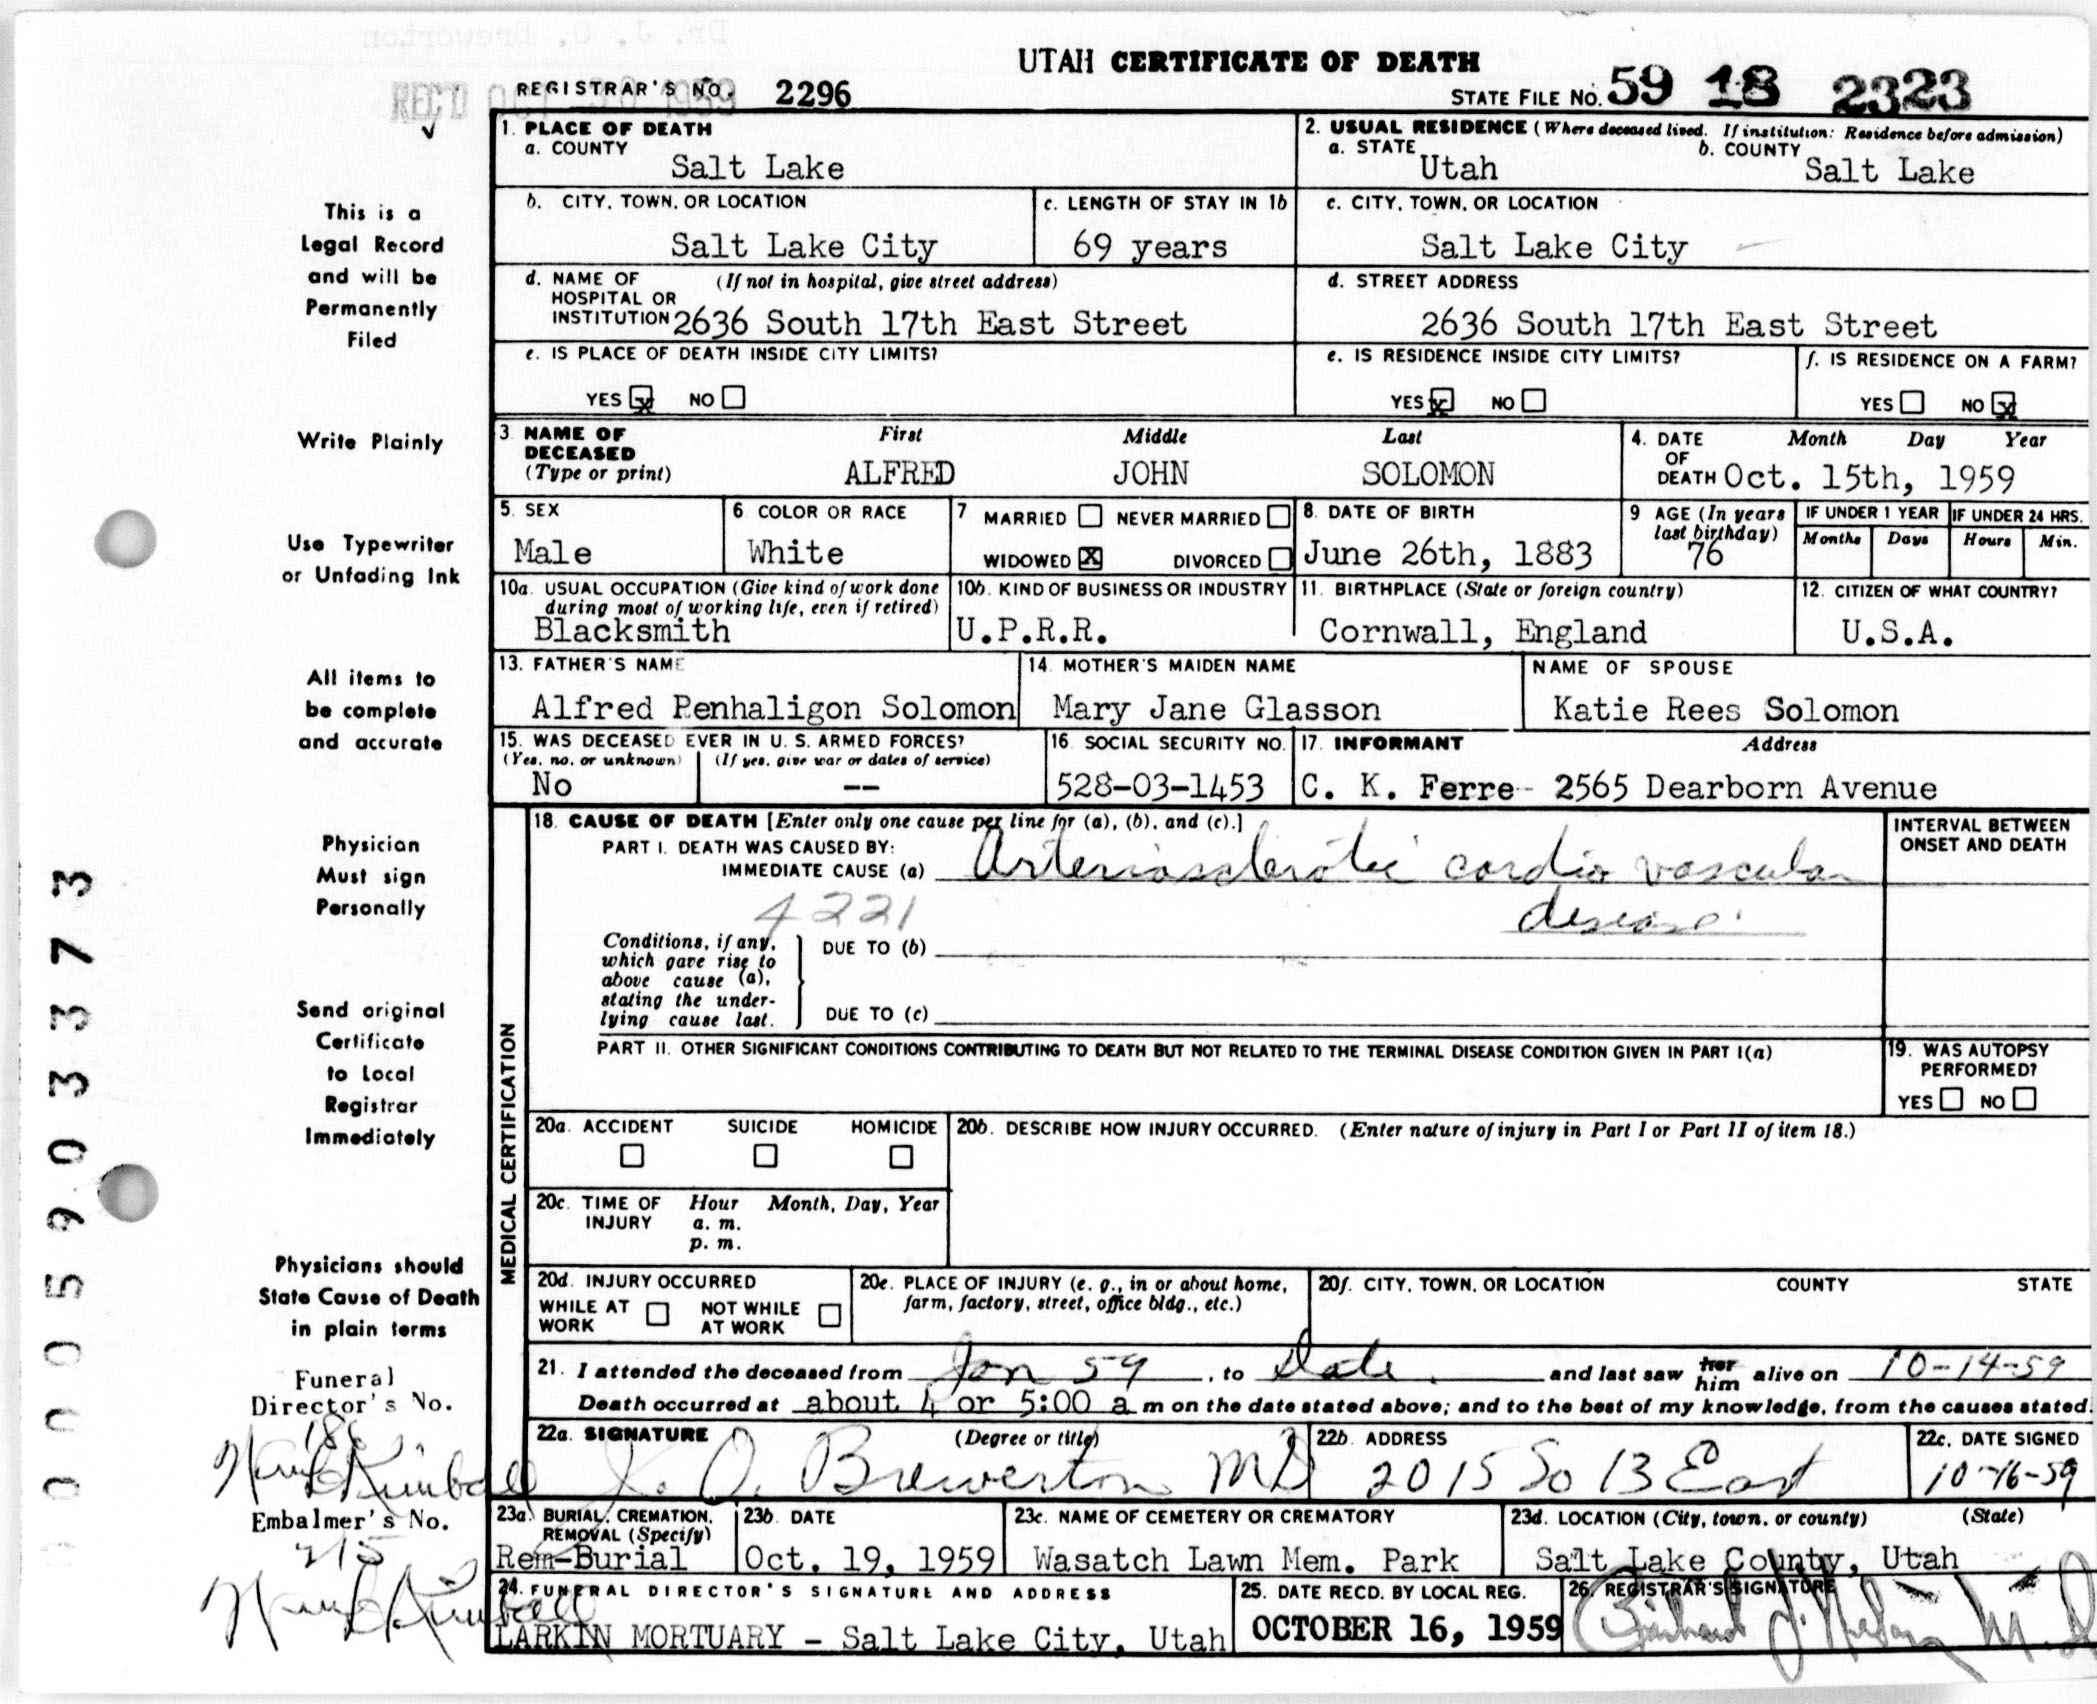 UTAH CERTIFICATE OF DEATH
REC'D OCT 20 1959
REGISTRAR'S NO. 2296
STATE FILE NO. 59 18 2323
1. PLACE OF DEATH
a. COUNTY
Salt Lake
2. USUAL RESIDENCE (Where deceased lived. If institution: Residence before admission)
a. STATE Utah
b. COUNTY Salt Lake
b. CITY, TOWN, OR LOCATION
Salt Lake City
c. LENGTH OF STAY IN 1b
69 years
c. CITY, TOWN, OR LOCATION
Salt Lake City
d. NAME OF HOSPITAL OR INSTITUTION (If not in hospital, give street address)
2636 South 17th East Street
d. STREET ADDRESS
2636 South 17th East Street
e. IS PLACE OF DEATH INSIDE CITY LIMITS?
YES X NO
e. IS RESIDENCE INSIDE CITY LIMITS?
YES X NO
f. IS RESIDENCE ON A FARM?
YES NO X
3. NAME OF DECEASED (Type or print)
First Middle Last
ALFRED JOHN SOLOMON
4. DATE OF DEATH Month Day Year
Oct. 15th, 1959
5. SEX
Male
6 COLOR OR RACE
White
7 MARRIED NEVER MARRIED
WIDOWED X DIVORCED
8. DATE OF BIRTH
June 26th, 1883
9 AGE (In years last birthday)
76
IF UNDER 1 YEAR
Months Days
IF UNDER 24 HRS.
Hours Min.
10a. USUAL OCCUPATION (Give kind of work done during most of working life, even if retired)
Blacksmith
10b. KIND OF BUSINESS OR INDUSTRY
U.P.R.R.
11. BIRTHPLACE (State or foreign country)
Cornwall, England
12. CITIZEN OF WHAT COUNTRY?
U.S.A.
13. FATHER'S NAME
Alfred Penhaligon Solomon
14. MOTHER'S MAIDEN NAME
Mary Jane Glasson
NAME OF SPOUSE
Katie Rees Solomon
15. WAS DECEASED EVER IN U. S. ARMED FORCES?
(Yes, no, or unknown) (If yes, give war or dates of service)
No --
16. SOCIAL SECURITY NO.
528-03-1453
17. INFORMANT Address
C. K. Ferre - 2565 Dearborn Avenue
MEDICAL CERTIFICATION
18. CAUSE OF DEATH [Enter only one cause per line for (a), (b), and (c).]
PART I. DEATH WAS CAUSED BY:
IMMEDIATE CAUSE (a) Arteriosclerotic cardio vascular
disease
4221
Conditions, if any, which gave rise to above cause (a), stating the underlying cause last.
DUE TO (b)
DUE TO (c)
INTERVAL BETWEEN ONSET AND DEATH
PART II. OTHER SIGNIFICANT CONDITIONS CONTRIBUTING TO DEATH BUT NOT RELATED TO THE TERMINAL DISEASE CONDITION GIVEN IN PART I(a)
19. WAS AUTOPSY PERFORMED?
YES NO
20a. ACCIDENT SUICIDE HOMICIDE
20b. DESCRIBE HOW INJURY OCCURRED. (Enter nature of injury in Part I or Part II of item 18.)
20c. TIME OF INJURY Hour Month, Day, Year
a. m.
p. m.
20d. INJURY OCCURRED
WHILE AT WORK NOT WHILE AT WORK
20e. PLACE OF INJURY (e. g., in or about home, farm, factory, street, office bldg., etc.)
20f. CITY, TOWN, OR LOCATION COUNTY STATE
21. I attended the deceased from Jan 59, to Date and last saw her him alive on 10-14-59
Death occurred at about 4 or 5:00 a m on the date stated above; and to the best of my knowledge, from the causes stated.
22a. SIGNATURE (Degree or title)
J. O. Brewerton MD
22b. ADDRESS
2015 So 13 East
22c. DATE SIGNED
10-16-59
23a. BURIAL, CREMATION, REMOVAL (Specify)
Rem-Burial
23b. DATE
Oct. 19, 1959
23c. NAME OF CEMETERY OR CREMATORY
Wasatch Lawn Mem. Park
23d. LOCATION (City, town, or county) (State)
Salt Lake County, Utah
24. FUNERAL DIRECTOR'S SIGNATURE AND ADDRESS
LARKIN MORTUARY - Salt Lake City, Utah
25. DATE RECD. BY LOCAL REG.
OCTOBER 16, 1959
26. REGISTRAR'S SIGNATURE
This is a
Legal Record
and will be
Permanently
Filed
Write Plainly
Use Typewriter
or Unfading Ink
All items to
be complete
and accurate
Physician
Must sign
Personally
Send original
Certificate
to Local
Registrar
Immediately
Physicians should
State Cause of Death
in plain terms
Funeral
Director's No.
Embalmer's No.
215
0005903373